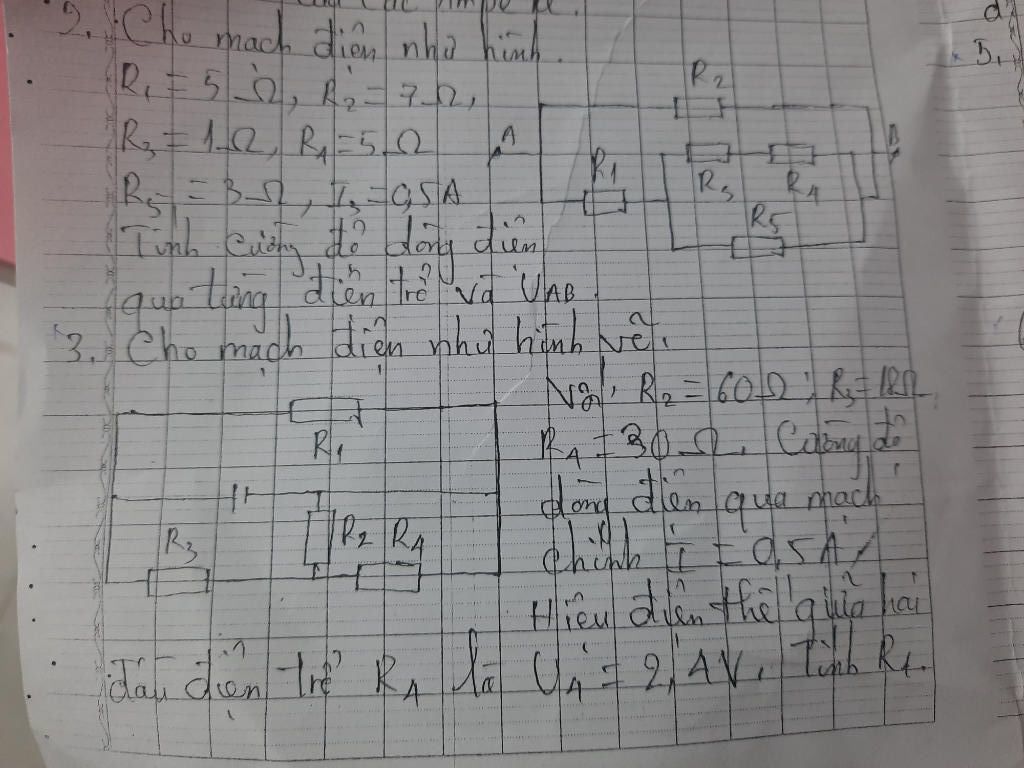 2. Cho mạch điện như hình.
R₁ = 5 Ω, R₂ = 7 Ω,
R₃ = 1 Ω, R₄ = 5 Ω
R₅ = 3 Ω, I₃ = 0,5 A
Tính cường độ dòng điện
qua từng điện trở và U_AB.
R₂
A
B
R₁
R₃ R₄
R₅
3. Cho mạch điện như hình vẽ.
R₂ = 60 Ω; R₃ = 12 Ω,
R₄ = 30 Ω. Cường độ
dòng điện qua mạch
chính I = 0,5 A,
Hiệu điện thế giữa hai
đầu điện trở R₄ là U₄ = 2,4V. Tính R₁.
R₁
R₃
R₂ R₄
d
5.